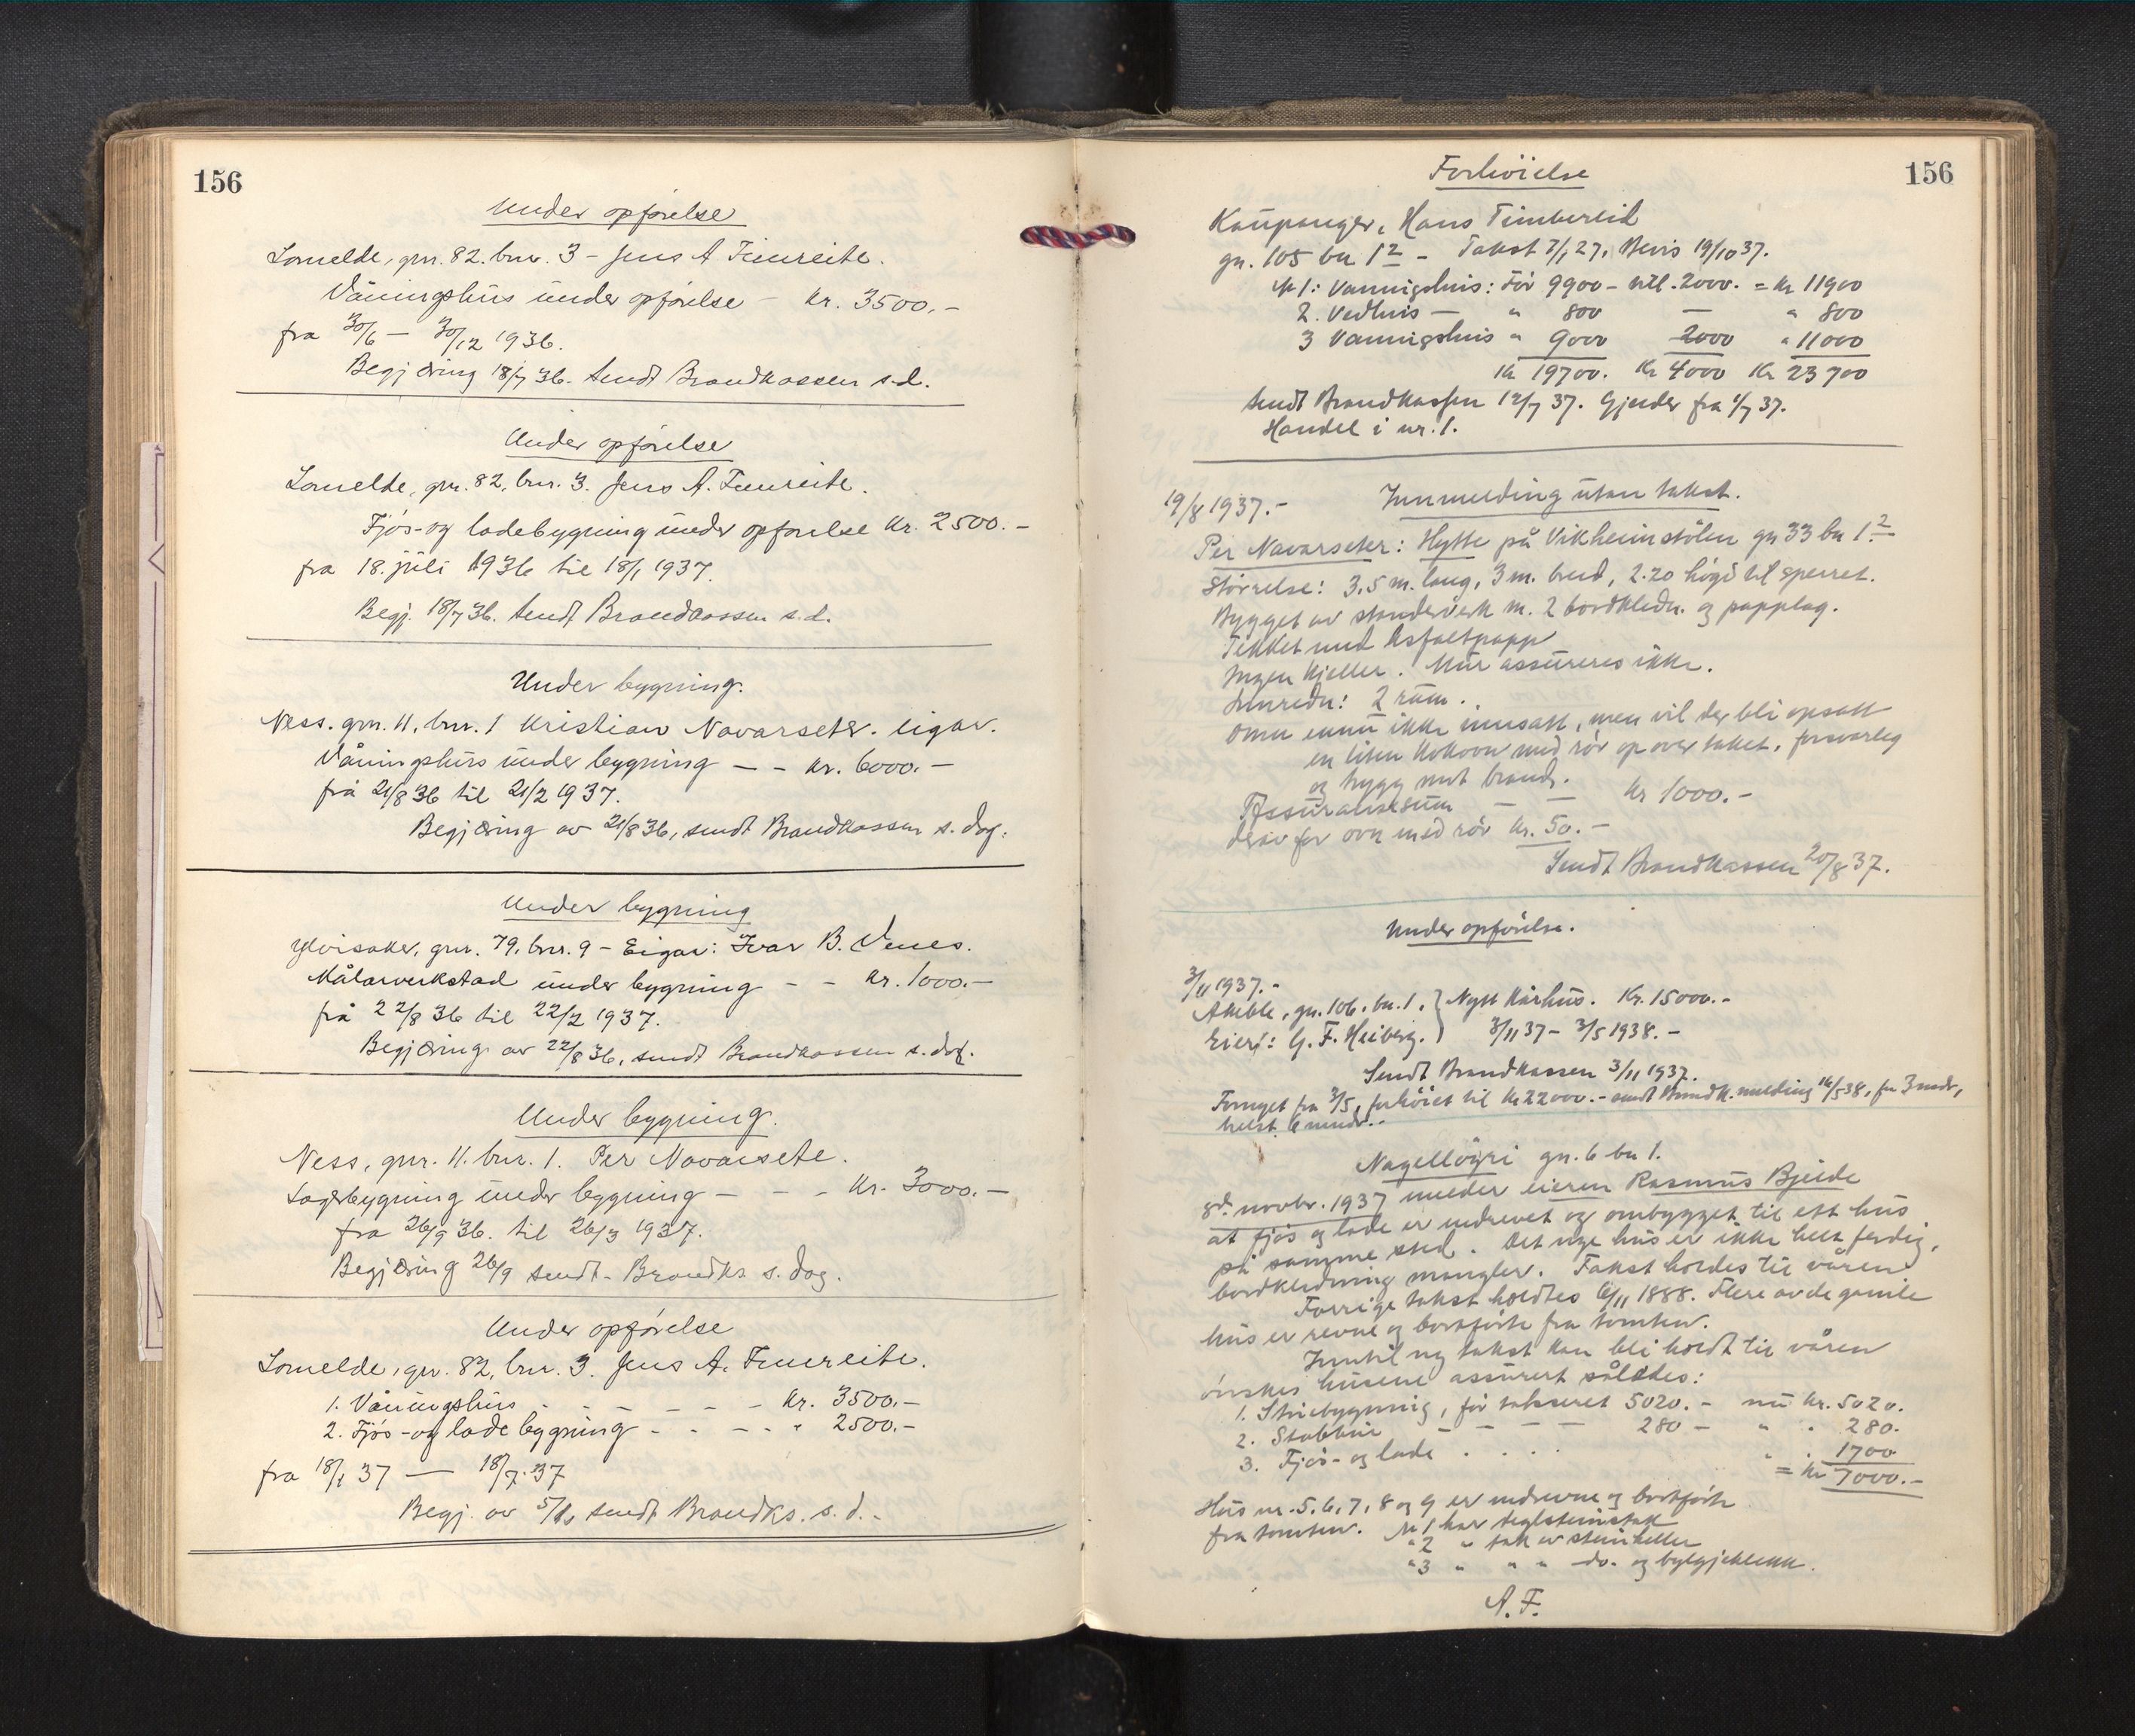 156
Under opførelse
Lomelde, gnr. 82. bnr. 3 - Jens A Timreite.
Våningshus under opførelse - Kr. 3500.-
fra 30/6 - 30/12 1936.
Begjæring 18/7 36. Sendt Brandkassen s.d.
Under opførelse
Lomelde, gnr. 82, bnr. 3. Jens A. Timreite.
Fjøs- og ladebygning under opførelse Kr. 2500.-
fra 18. juli 1936 til 18/1 1937.
Begj. 18/7 36. Sendt Brandkassen s.d.
Under bygning.
Ness. gnr. 11. bnr. 1 Kristian Navarseter. eigar.
Våningshus under bygning - - kr. 6000.-
frå 21/8 36 til 21/2 1937.
Begjæring av 21/8 36, sendt Brandkassen s. dag.
Under bygning
Ylvisaker, gnr. 79. bnr. 9 - Eigar: Ivar B. Venes.
Målarverkstad under bygning - - kr. 1000.-
frå 22/8 36 til 22/2 1937.
Begjæring av 22/8 36, sendt Brandkassen s. dag.
Under bygning.
Ness, gnr. 11. bnr. 1. Per Navarsete.
Lagerbygning under bygning - - - Kr. 3000.-
fra 26/9 36. til 26/3 1937.
Begjæring 26/9 sendt - Brandks s. dag.
Under opførelse
Lomelde, gnr. 82, bnr. 3. Jens A. Timreite.
1. Våningshus - - - - - Kr. 3500.-
2. Fjøs- og ladebygning - - - - " 2500.-
fra 18/1 37 - 18/7. 37
Begj. av 5/1, sendt Brandks. s. d.-
156
Forhöielse
Kaupanger, Hans Timbereid
gn. 105 bn 12 - Takst 7/1 27, Bevis 19/10 37.
Nr 1: Vanningshus: För 9900 - till. 2000. = Kr 11900
2. Vedhus - " 800 - " 800
3 Vanningshus " 9000 2000 " 11000
Kr 19700. Kr 4000 Kr 23700
Sendt Brandkassen 12/7 37. Gjelder fra 1/7 37.
Handel i nr. 1.
19/8 1937.- Innmelding utan takst.
Per Navarseter: Hytte på Vikheimstölen gn 33 bn 12
Störrelse: 3,5 m. lang, 3 m. bred, 2.20 högd til sperret.
Bygget av stenderverk m. 2 bordkledn. og papplag.
Tekket med Asfaltpapp
Ingen kjeller. Mur assureres ikke.
Innredn: 2 rum.
Omn ennu ikke innsatt, men vil der bli opsatt
en liten kokovn med rör op over taket, forsvarleg
og trygg mot brand.
Assuransesum - - Kr 1000.-
derav for ovn med rör kr. 50.-
Sendt Brandkassen 20/8 37.
Under opförelse.
3/11 1937.-
Amble, gn. 106. bn. 1. } Nytt Kårhus. Kr. 15000.-
Eier: G. F. Heiberg. } 3/11 37 - 3/5 1938.-
Sendt Brandkassen 3/11 1937.
Fornyet fra 3/5, forhöiet til Kr 22000.- sendt Brandk. melding 16/5 38, for 3 mndr,
helst 6 mndr.-
Nagellöyri gn. 6 bn 1.
8d. novbr. 1937 melder eieren Rasmus Bjelde
at fjös og lade er nedrevet og ombygget til ett hus
på samme sted. Det nye hus er ikke helt ferdig,
bordkledning mangler. Takst holdes til våren
Forrige takst holdtes 6/11 1888. Flere av de gamle
hus er revne og bortförte fra tomten.
Inntil ny takst kan bli holdt til våren
önskes husene assurert således:
1. Stuebygning, för taksert 5020.- nu kr. 5020.
2. Stabbur - - - - 280 - " " 280.
3. Fjös- og lade . . . . " . 1700
= Kr 7000.-
Hus nr. 5, 6, 7, 8 og 9 er nedrevne og bortförte
fra tomten. Nr 1 har teglsteinstak
" 2 " tak av steinheller
" 3 " " " do. og bylgjeblekk.
A. F.